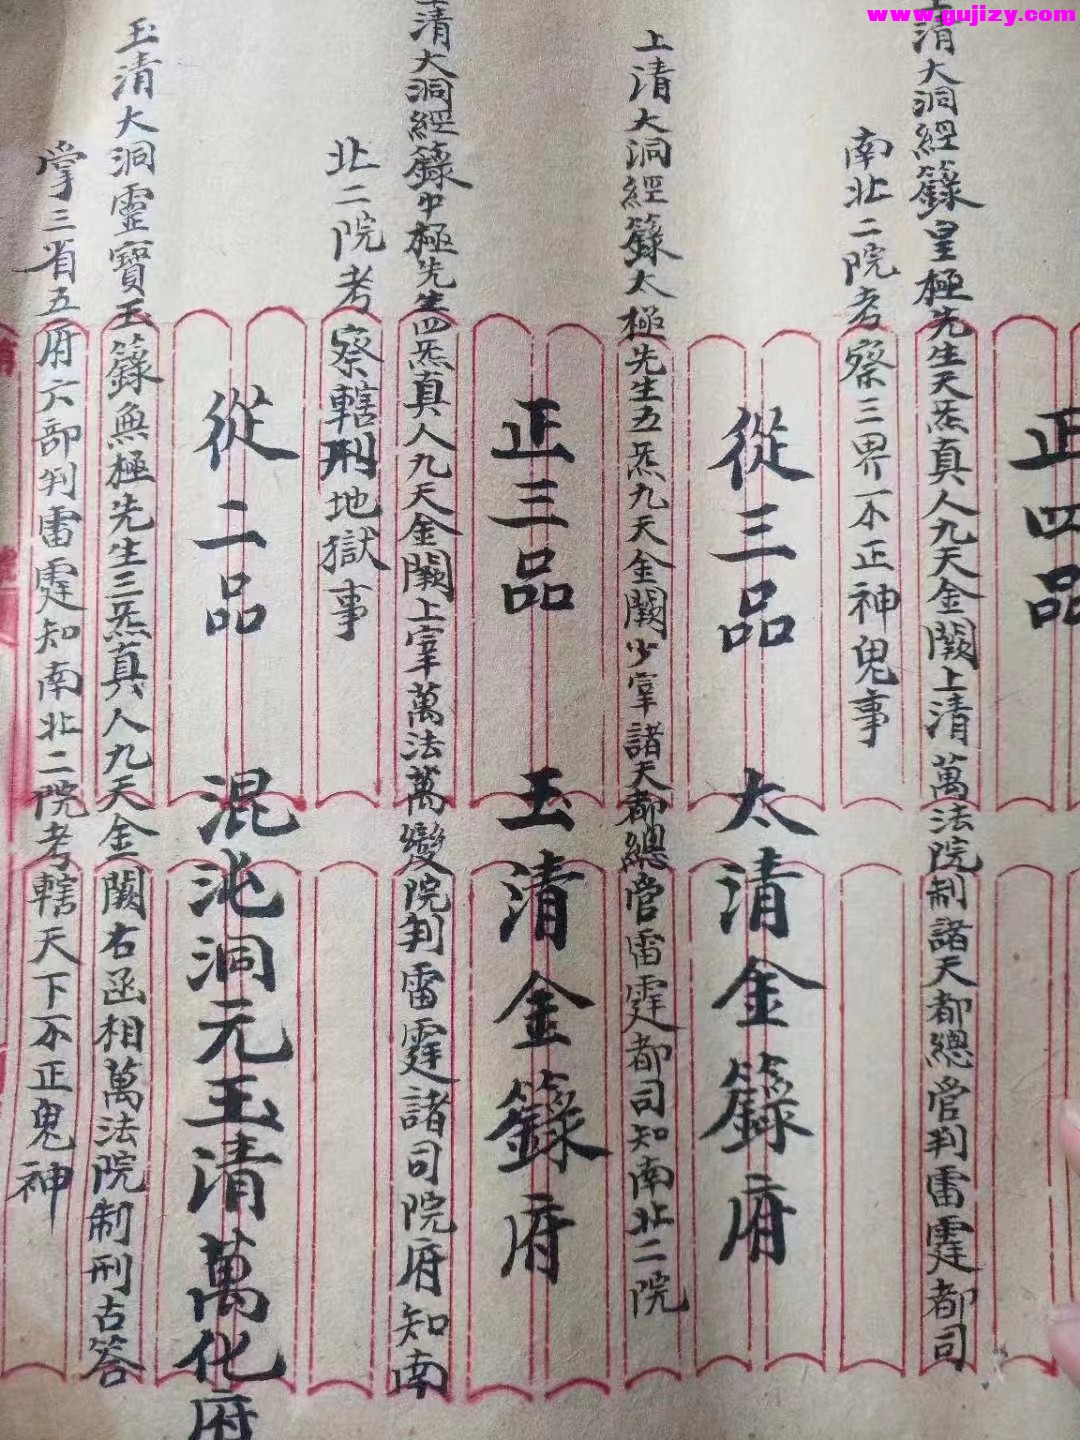 www.gujizy.com
正四品
上清大洞經籙皇極先生天炁真人九天金闕上清萬法院制諸天都總管判雷霆都司
南北二院考察三界不正神鬼事
從三品　太清金籙府
上清大洞經籙太極先生五炁九天金闕少宰諸天都總管雷霆都司知南北二院
正三品　玉清金籙府
上清大洞經籙中極先生四炁真人九天金闕上宰萬法萬變院判雷霆諸司院府知南
北二院考察轄刑地獄事
從二品　混沌洞元玉清萬化府
玉清大洞靈寶玉籙無極先生三炁真人九天金闕右丞相萬法院制刑古答
掌三省五府六部判雷霆知南北二院考轄天下不正鬼神